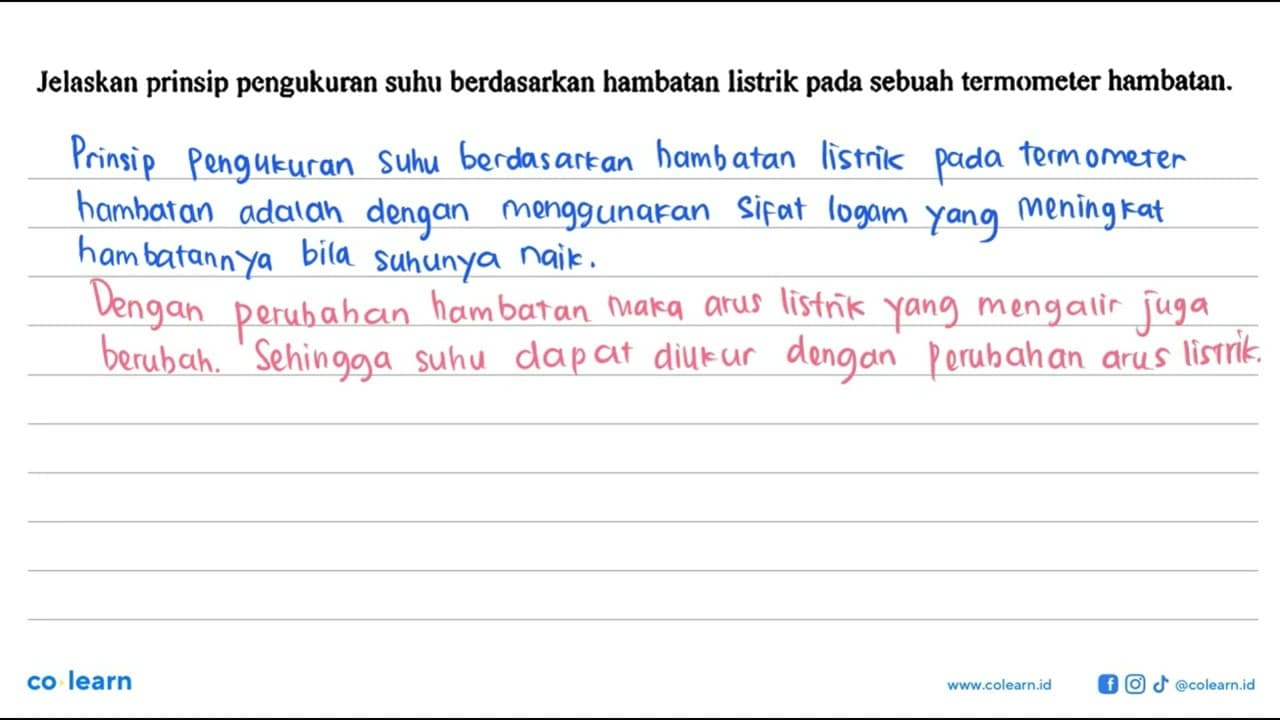 Jelaskan prinsip pengukuran suhu berdasarkan hambatan listrik pada sebuah termometer hambatan.
Prinsip Pengukuran suhu berdasarkan hambatan listrik pada termometer
hambatan adalah dengan menggunakan sifat logam yang meningkat
hambatannya bila suhunya naik.
Dengan perubahan hambatan maka arus listrik yang mengalir juga
berubah. Sehingga suhu dapat diukur dengan perubahan arus listrik.
co learn
www.colearn.id @colearn.id